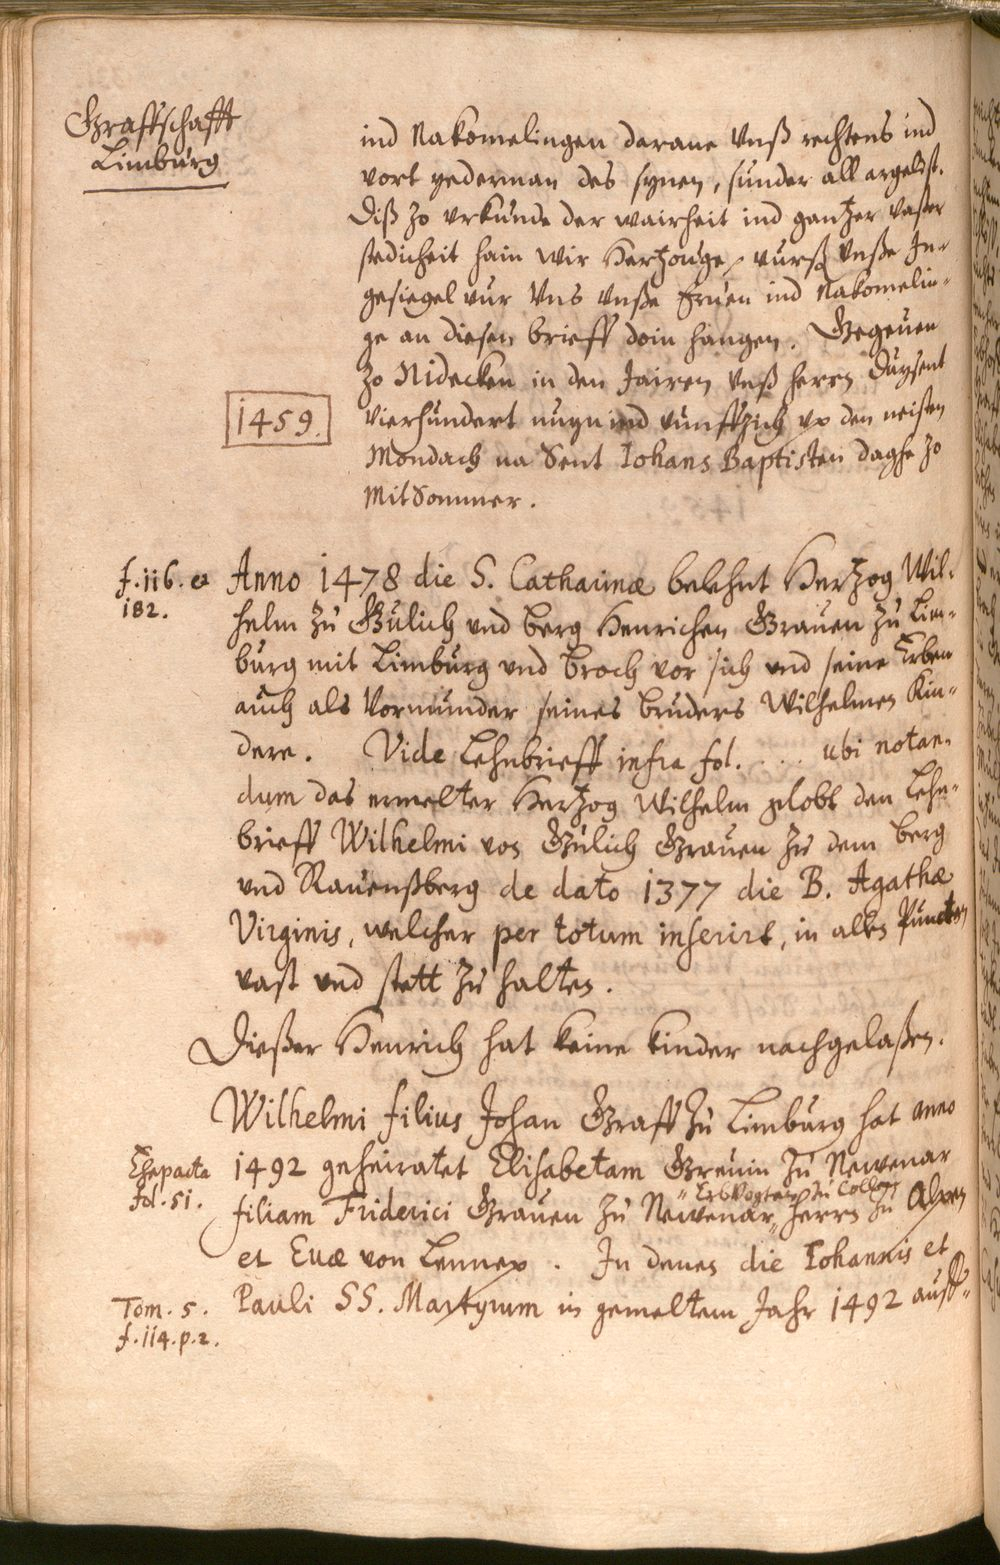 Graffschafft
Limburg
ind Nakomelingen darane vnß rechtens ind
vort yederman des synen, sunder all argelist.
Diß zo vrkunde der wairheit ind gantzer vaster
stedicheit hain wir Hertzouge vurß vnße In-
gesiegel vur vns vnße Eruen ind Nakomelin-
ge an diesen brieff doin hangen. Gegeuen
zo Nidecken in den Jairen vnß herrn duysent
vierhundert nuyn ind vunffzich vp den neisten
1459.
Mondach na Sent Johans Baptisten daghe zo
MitSommer.
f. 116. et
182.
Anno 1478 die S. Catharinæ belehnt Hertzog Wil-
helm zu Gulich vnd Berg Henrichen Grauen zu Lim-
burg mit Limburg vnd Broch vor sich vnd seine Erben
auch als Vormunder seines bruders Wilhelmen Kin-
dere. Vide Lehnbrieff infra fol. .... ubi notan-
dum das ermelter Hertzog Wilhelm globt den Lehn-
brieff Wilhelmi von Gulich Grauen zu dem Berg
vnd Rauenßberg de dato 1377 die B. Agathæ
Virginis, welcher per totum inserirt, in allen Puncten
vast vnd stett zu halten.
Dießer Henrich hat keine kinder nachgelaßen.
Wilhelmi filius Johan Graff zu Limburg hat anno
Ehepacta
fol. 51.
1492 geheiratet Elisabetam Greuin zu Newenar
" ErbVogten zu Collen
filiam Friderici Grauen zu Newenar " Herrn zu Alpen
et Euæ von Lennep. In denen die Johannis et
Tom. 5.
f. 114. p. 2.
Pauli SS. Martyrum in gemeltem Jahr 1492 auff-